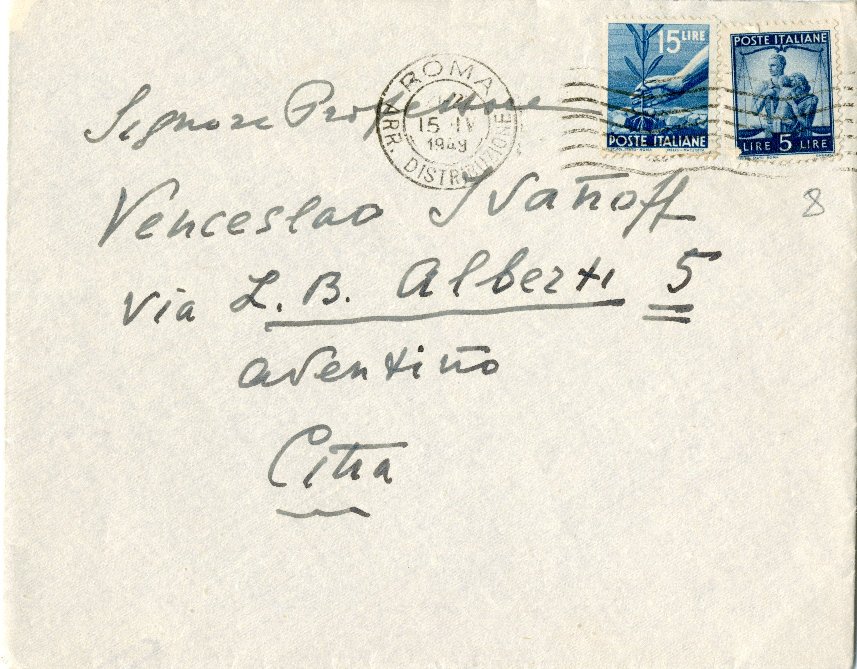 15 LIRE
POSTE ITALIANE
POSTE ITALIANE
LIRE 5 LIRE
ROMA
15 IV
1949
ARR. DISTRIBUZIONE
Signore Professore
Venceslao Ivanoff
via L. B. Alberti 5
aventino
Citta
8